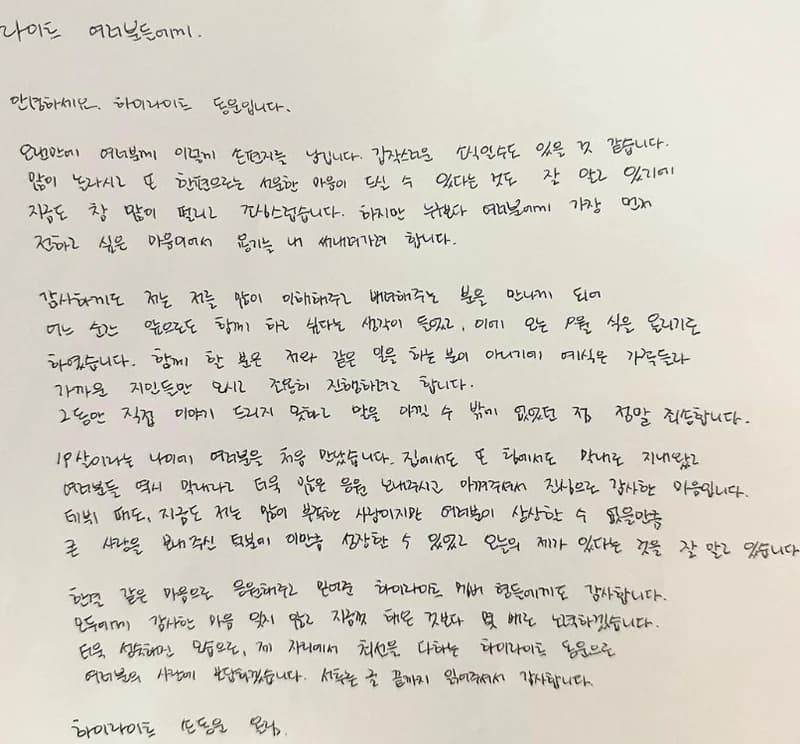 라이트 여러분들에게.
안녕하세요. 하이라이트 동운입니다.
오랜만에 여러분께 이렇게 손편지를 남깁니다. 갑작스러운 소식일수도 있을 것 같습니다.
많이 놀라시고 또 한편으로는 서운한 마음이 드실 수 있다는 것도 잘 알고 있기에
지금도 참 많이 떨리고 조심스럽습니다. 하지만 누구보다 여러분에게 가장 먼저
전하고 싶은 마음이어서 용기를 내 써내려가려 합니다.
감사하게도 저는 저를 많이 이해해주고 배려해주는 분을 만나게 되어
어느 순간 앞으로도 함께 하고 싶다는 생각이 들었고, 이에 오는 9월 식을 올리기로
하였습니다. 함께 할 분은 저와 같은 일을 하는 분이 아니기에 예식은 가족들과
가까운 지인들만 모시고 조용히 진행하려고 합니다.
그동안 직접 이야기 드리지 못하고 말을 아낄 수 밖에 없었던 점 정말 죄송합니다.
19살이라는 나이에 여러분을 처음 만났습니다. 집에서도 또 팀에서도 막내로 지내왔고
여러분들 역시 막내라고 더욱 많은 응원 보내주시고 아껴주셔서 진심으로 감사한 마음입니다.
데뷔 때도, 지금도 저는 많이 부족한 사람이지만 여러분이 상상할 수 없을만큼
큰 사랑을 보내 주신 덕분에 이만큼 성장할 수 있었고 오늘의 제가 있다는 것을 잘 알고 있습니다
한결 같은 마음으로 응원해주고 믿어준 하이라이트 멤버 형들에게도 감사합니다.
모두에게 감사한 마음 잊지 않고 지금껏 해온 것보다 몇 배로 노력하겠습니다.
더욱 성숙해진 모습으로, 제 자리에서 최선을 다하는 하이라이트 동운으로
여러분의 사랑에 보답하겠습니다. 서투른 글 끝까지 읽어주셔서 감사합니다.
하이라이트 손동운 올림.